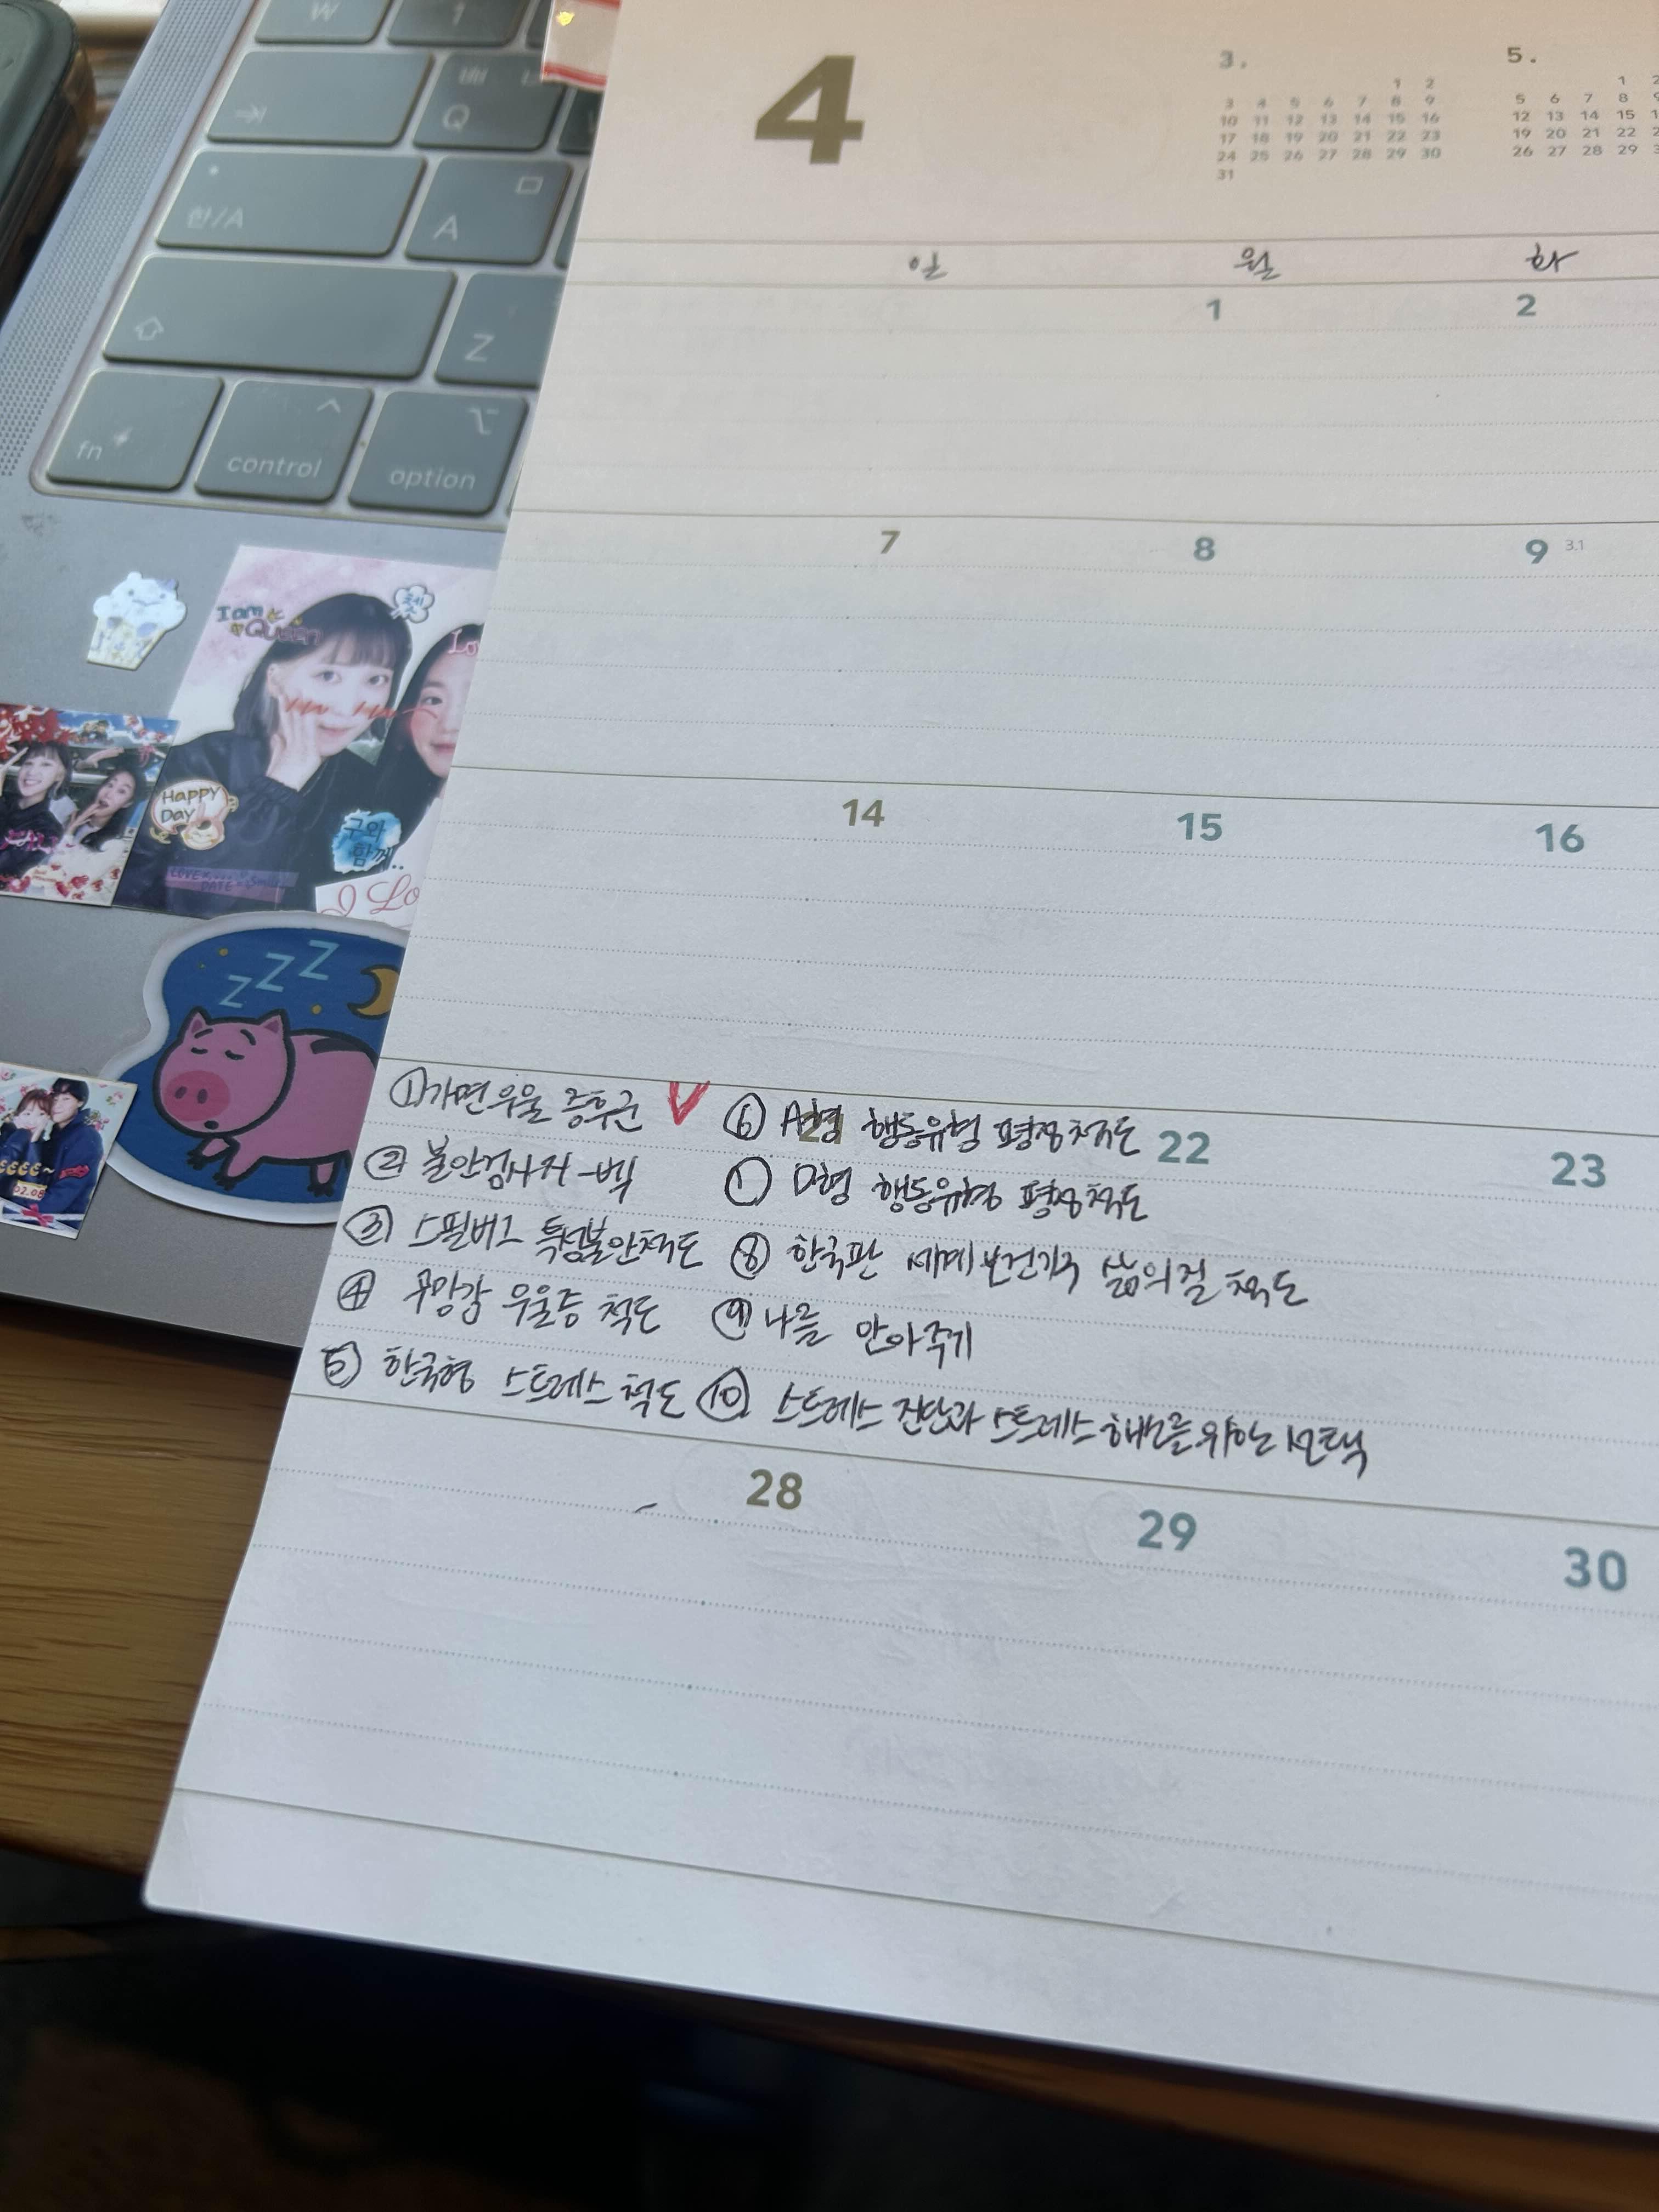 W
1
Q
한/A
A
Z
fn
control
option
I am
Queen
첫
Happy
Day
구와
함께..
LOVE
DATE
I Lo
zzz
02.05
4
3.
1 2
3 4 5 6 7 8 9
10 11 12 13 14 15 16
17 18 19 20 21 22 23
24 25 26 27 28 29 30
31
5.
1 2
5 6 7 8 9
12 13 14 15 1
19 20 21 22 2
26 27 28 29 3
일 월 화
1 2
7 8 9 3.1
14 15 16
21 22 23
① 가면 우울 증후군 V
② 불안검사지-벡
③ 스필버그 특성불안척도
④ 무망감 우울증 척도
⑤ 한국형 스트레스 척도
⑥ A형 행동유형 평정척도
⑦ D형 행동유형 평정척도
⑧ 한국판 세계보건기구 삶의질 척도
⑨ 나를 안아주기
⑩ 스트레스 진단과 스트레스 해소를 위한 선택
28 29 30